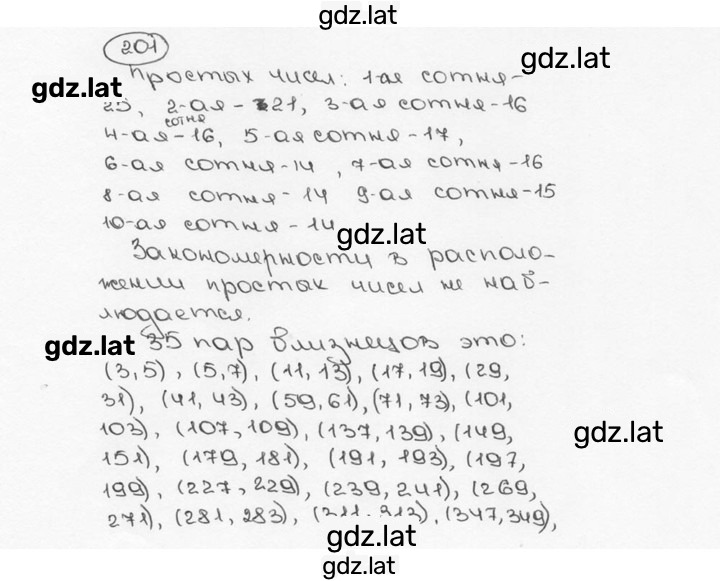 gdz.lat
201
gdz.lat
Простых чисел: 1-ая сотня-
gdz.lat
25, 2-ая - 21, 3-ая сотня-16
сотня
4-ая - 16, 5-ая сотня - 17,
6-ая сотня-14 , 7-ая сотня -16
8-ая сотня - 14 9-ая сотня-15
10-ая сотня - 14
gdz.lat
Закономерности в располо-
жении простых чисел не наб-
людается.
gdz.lat
35 пар близнецов это:
(3,5), (5,7), (11, 13), (17, 19), (29,
31), (41, 43), (59,61), (71, 73), (101,
103), (107, 109), (137, 139), (149,
gdz.lat
151), (179, 181), (191, 193), (197,
199), (227, 229), (239, 241), (269,
271), (281, 283), (311, 313), (347,349),
gdz.lat
gdz.lat